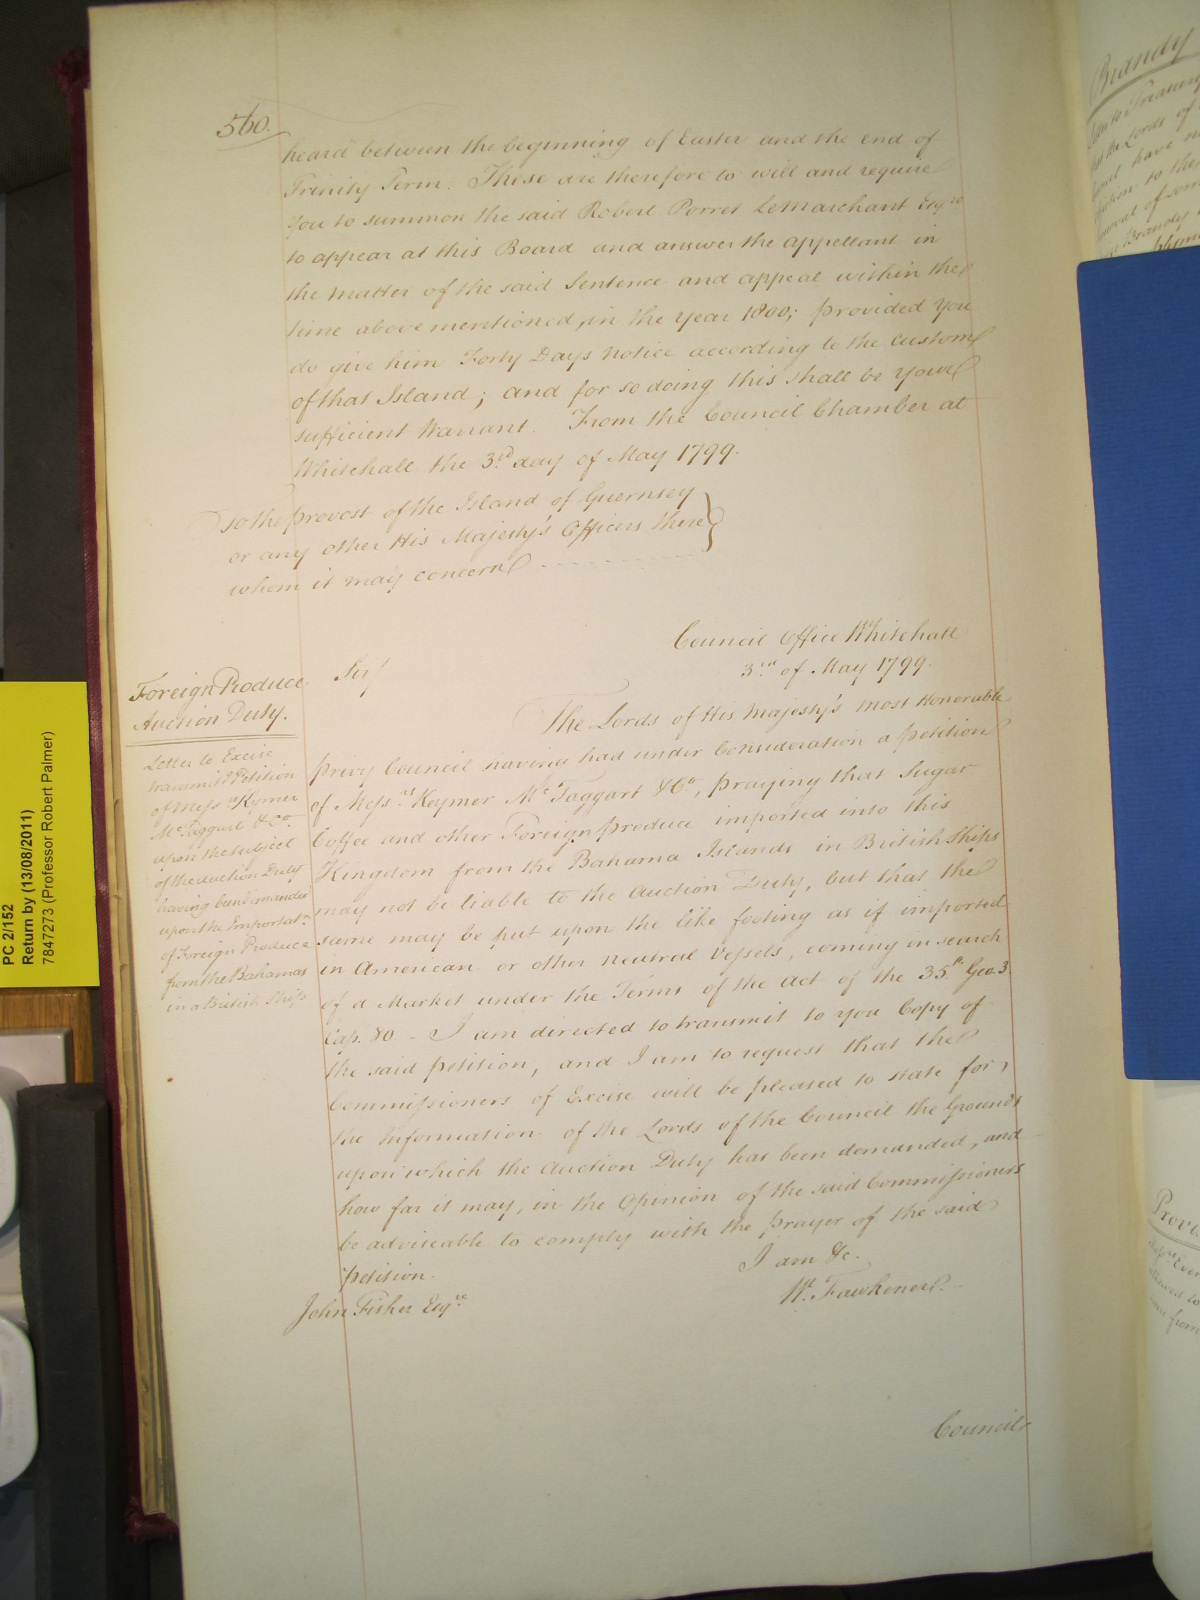 560.
heard between the beginning of Easter and the end of
Trinity Term. These are therefore to will and require
You to summon the said Robert Porret LeMarchant Esqre
to appear at this Board and answer the appellant in
the matter of the said Sentence and appeal within the
time above mentioned, in the Year 1800; provided You
do give him Forty Days notice according to the custom
of that Island; and for so doing this shall be your
sufficient Warrant. From the Council Chamber at
Whitehall the 3rd day of May 1799.
To the Provost of the Island of Guernsey
or any other His Majesty's Officers there
whom it may concern
Council Office Whitehall
3rd of May 1799.
Foreign Produce
Auction Duty.
Letter to Excise
transmitg Petition
of Messrs Kymer
McTaggart & Co.
upon the subject
of the auction Duty
having been demanded
upon the Importatn
of Foreign Produce
from the Bahamas
in a British Ship
Sir/
The Lords of His Majesty's most Honorable
Privy Council having had under Consideration a Petition
of Messrs Keymer McTaggart & Co, praying that Sugar
Coffee and other Foreign produce imported into this
Kingdom from the Bahama Islands in British Ships
may not be liable to the Auction Duty, but that the
same may be put upon the like footing as if imported
in American or other neutral Vessels, coming in search
of a Market under the Terms of the Act of the 35th Geo. 3
Cap. 80 - I am directed to transmit to you Copy of
the said petition, and I am to request that the
Commissioners of Excise will be pleased to state for
the Information of the Lords of the Council the Grounds
upon which the Auction Duty has been demanded, and
how far it may, in the Opinion of the said Commissioners
be adviseable to comply with the prayer of the said
petition.
I am &c.
W. Fawkener.
John Fisher Esqre
Council
PC 2/152
Return by (13/08/2011)
7847273 (Professor Robert Palmer)
Brandy